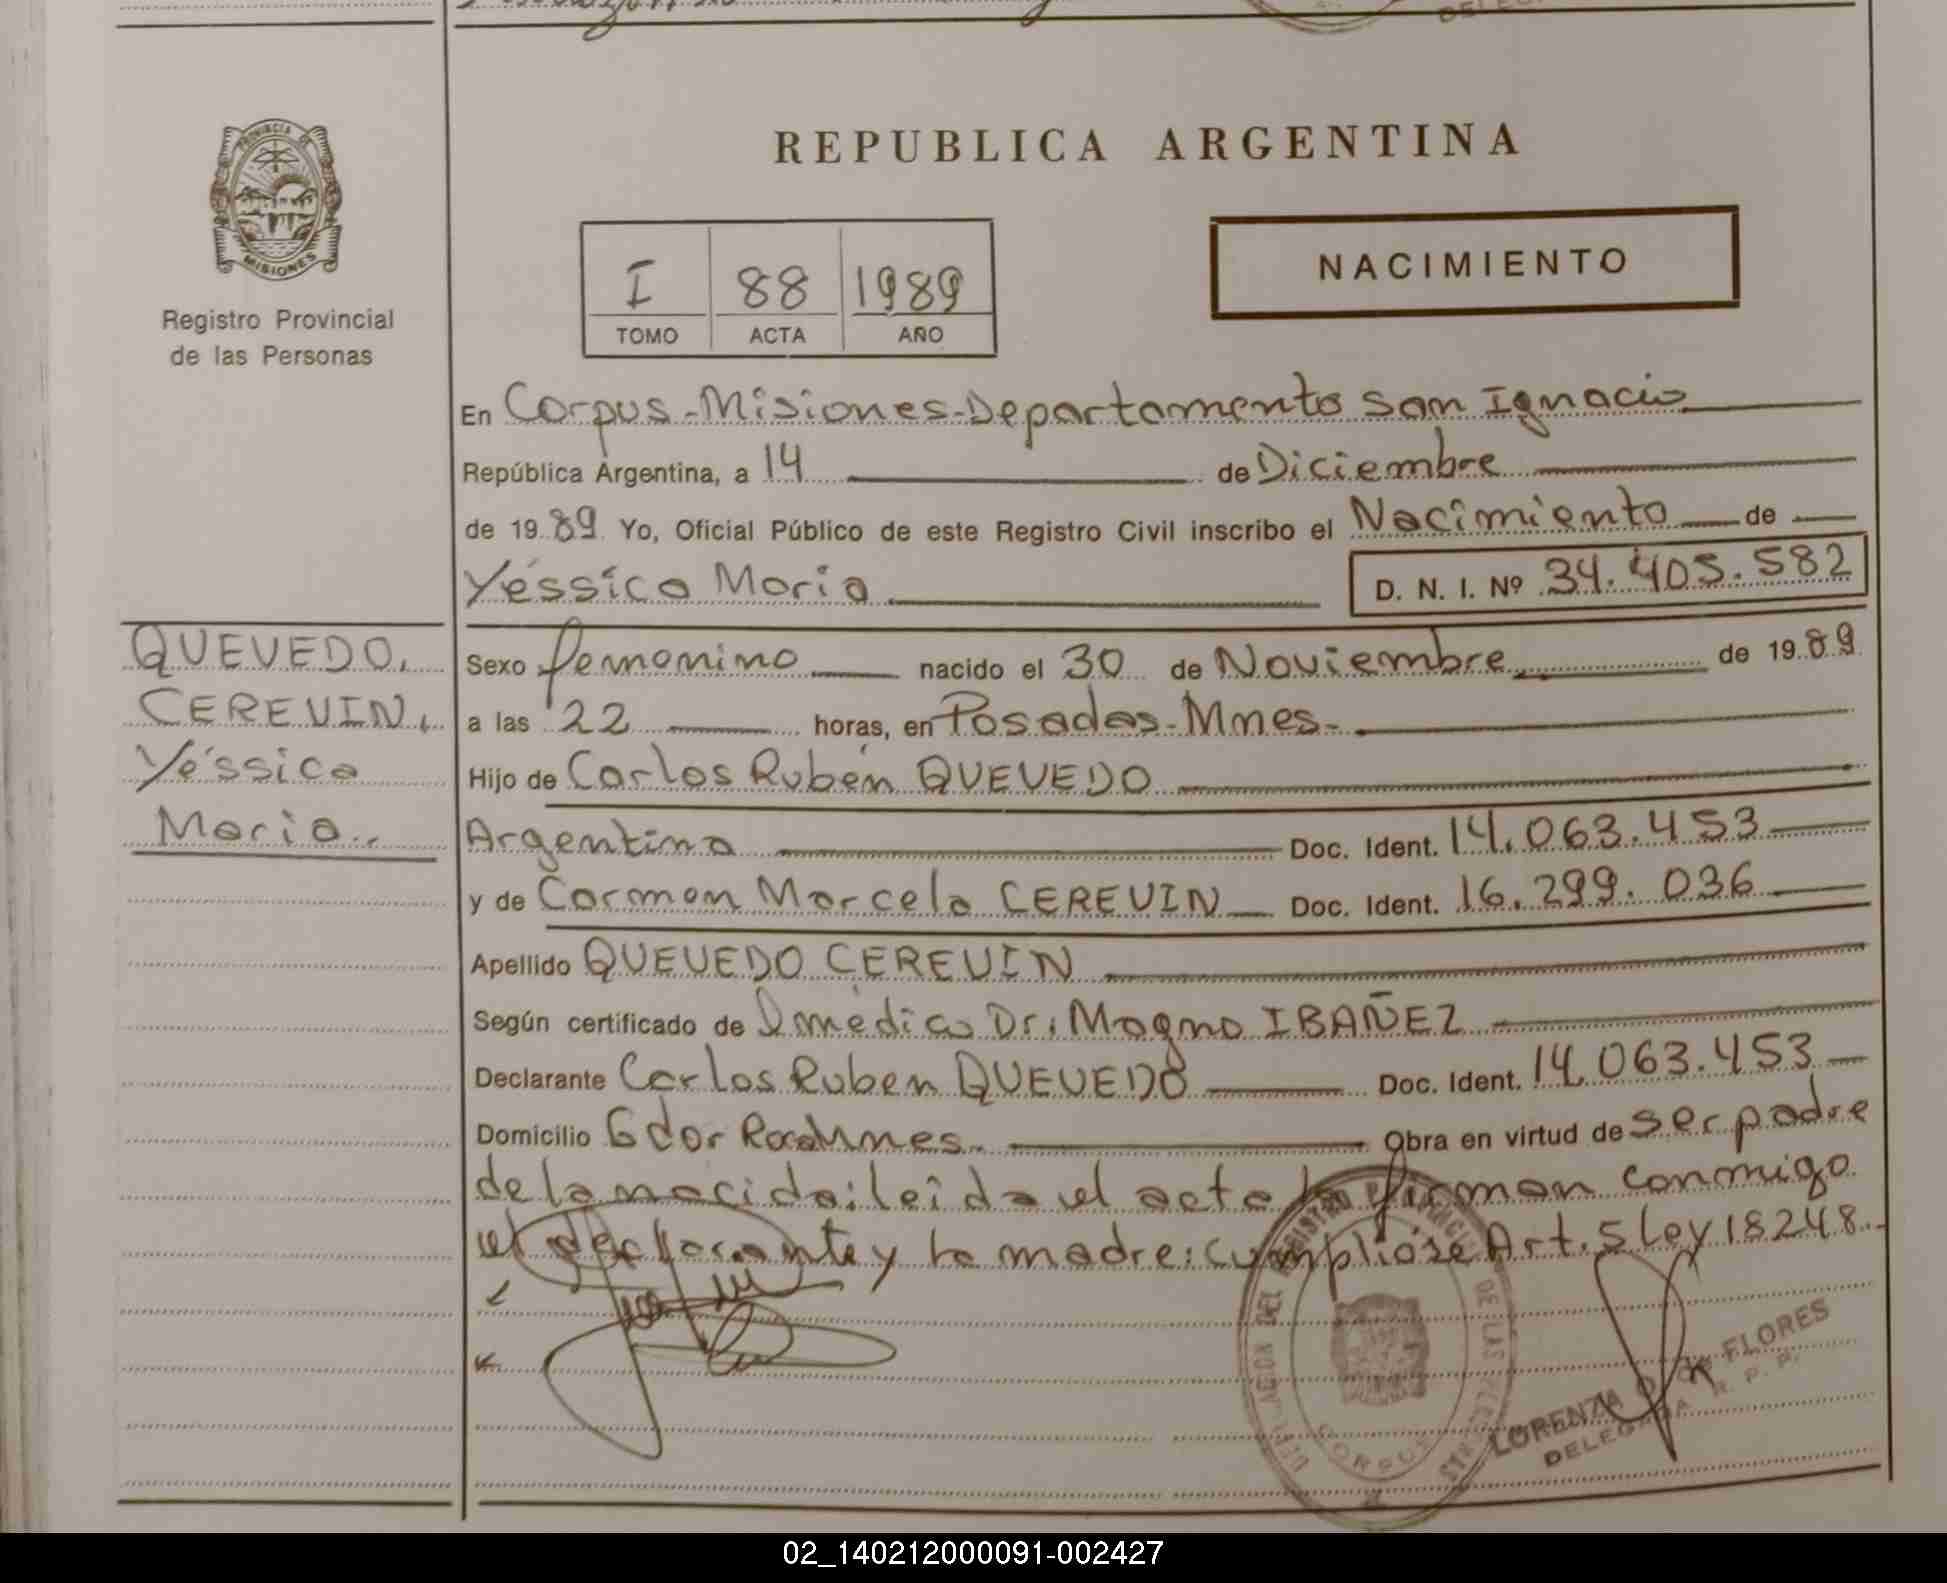 PROVINCIA DE
MISIONES
Registro Provincial
de las Personas
REPUBLICA ARGENTINA
I 88 1989
TOMO ACTA AÑO
NACIMIENTO
En Corpus-Misiones-Departamento San Ignacio
República Argentina, a 14 de Diciembre
de 1989 Yo, Oficial Público de este Registro Civil inscribo el Nacimiento de
Yéssica Maria D. N. I. Nº 34.405.582
QUEVEDO,
CEREVIN,
Yéssica
Maria..
Sexo femenino nacido el 30 de Noviembre de 1989
a las 22 horas, en Posadas-Mnes-
Hijo de Carlos Rubén QUEVEDO
Argentina Doc. Ident. 14.063.453
y de Carmen Marcela CEREVIN Doc. Ident. 16.299.036
Apellido QUEVEDO CEREVIN
Según certificado de médico Dr. Magno IBAÑEZ
Declarante Carlos Ruben QUEVEDO Doc. Ident. 14.063.453
Domicilio Gdor Roca Mnes. Obra en virtud de ser padre
de la nacida: leída el acta la firman conmigo
el declarante y la madre: cumplióse Art. 5 Ley 18248.
CORPUS
LORENZA FLORES
DELEGADA R. P. P.
02_140212000091-002427